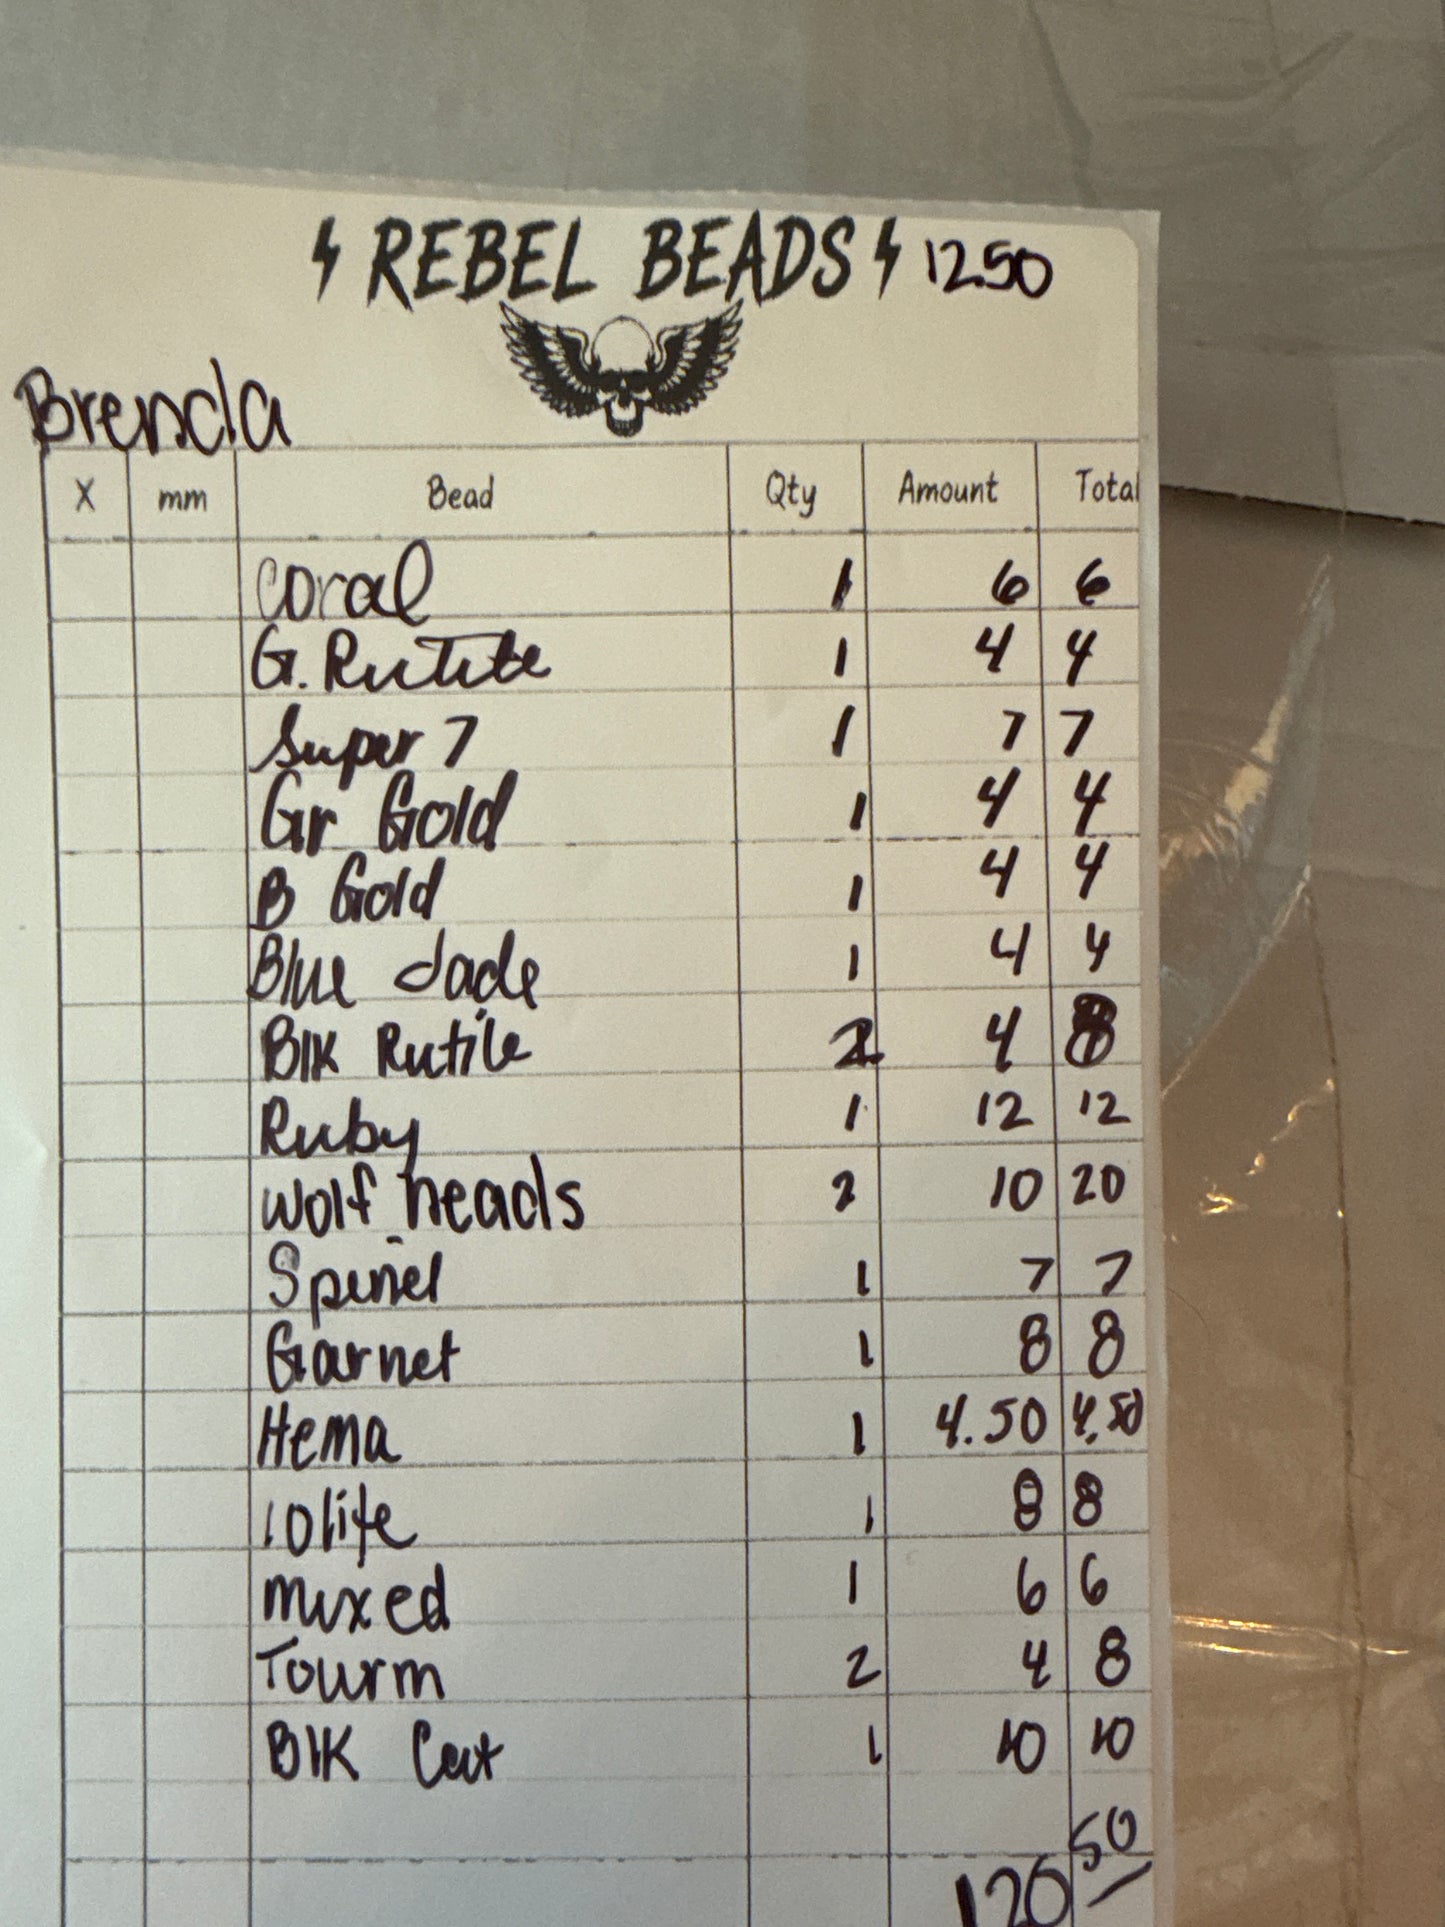 REBEL BEADS 12.50
Brenda
X mm Bead Qty Amount Total
Coral 1 6 6
G. Rutile 1 4 4
Super 7 1 7 7
Gr Gold 1 4 4
B Gold 1 4 4
Blue Jade 1 4 4
Blk Rutile 2 4 8
Ruby 1 12 12
Wolf heads 2 10 20
Spinel 1 7 7
Garnet 1 8 8
Hema 1 4.50 4.50
Iolite 1 8 8
Mixed 1 6 6
Tourm 2 4 8
Blk Cat 1 10 10
120 50